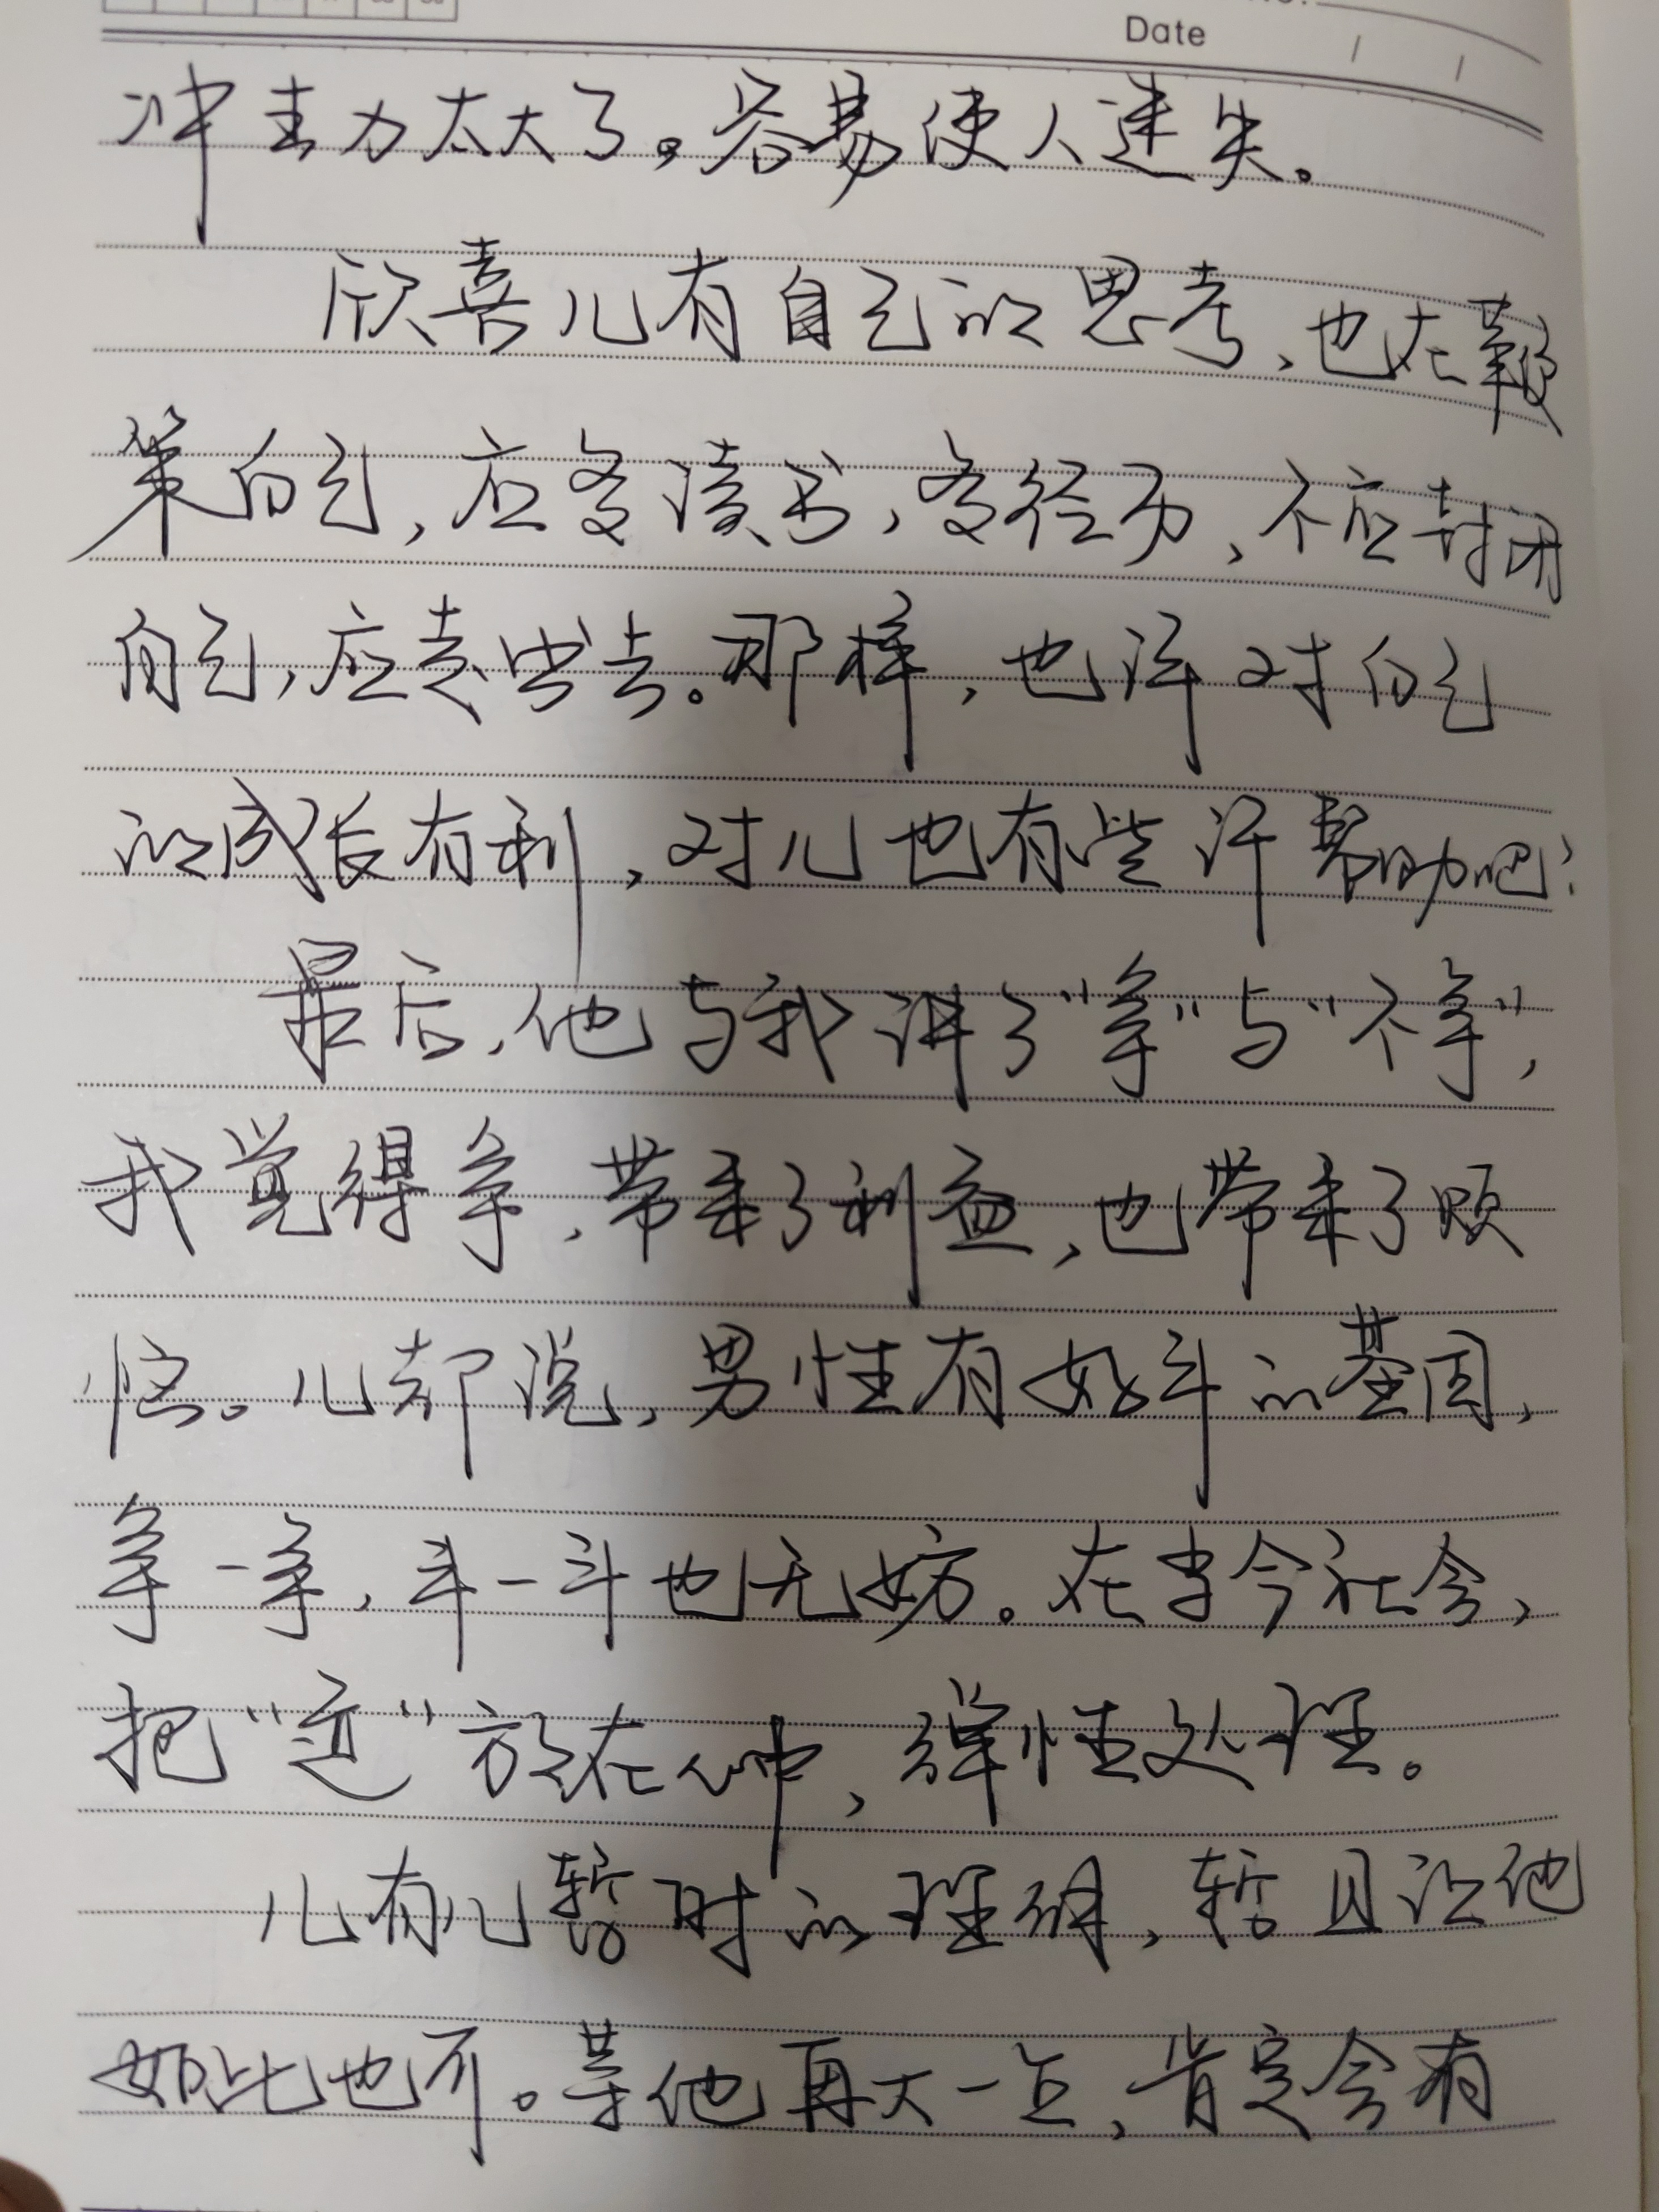 Date / /
冲击力太大了。容易使人迷失。
欣喜儿有自己的思考，也在鞭
策自己，应多读书，多经历，不应封闭
自己，应走出去。那样，也许对自己
的成长有利，对儿也有些许帮助吧？
最后，他与我讲了“争”与“不争”，
我觉得争，带来了利益，也带来了烦
恼。儿却说，男性有好斗的基因，
争一争，斗一斗也无妨。在当今社会，
把“ ”放在心中，弹性处理。
儿有儿暂时的理解，暂且让他
如此也可。等他再大一点，肯定会有